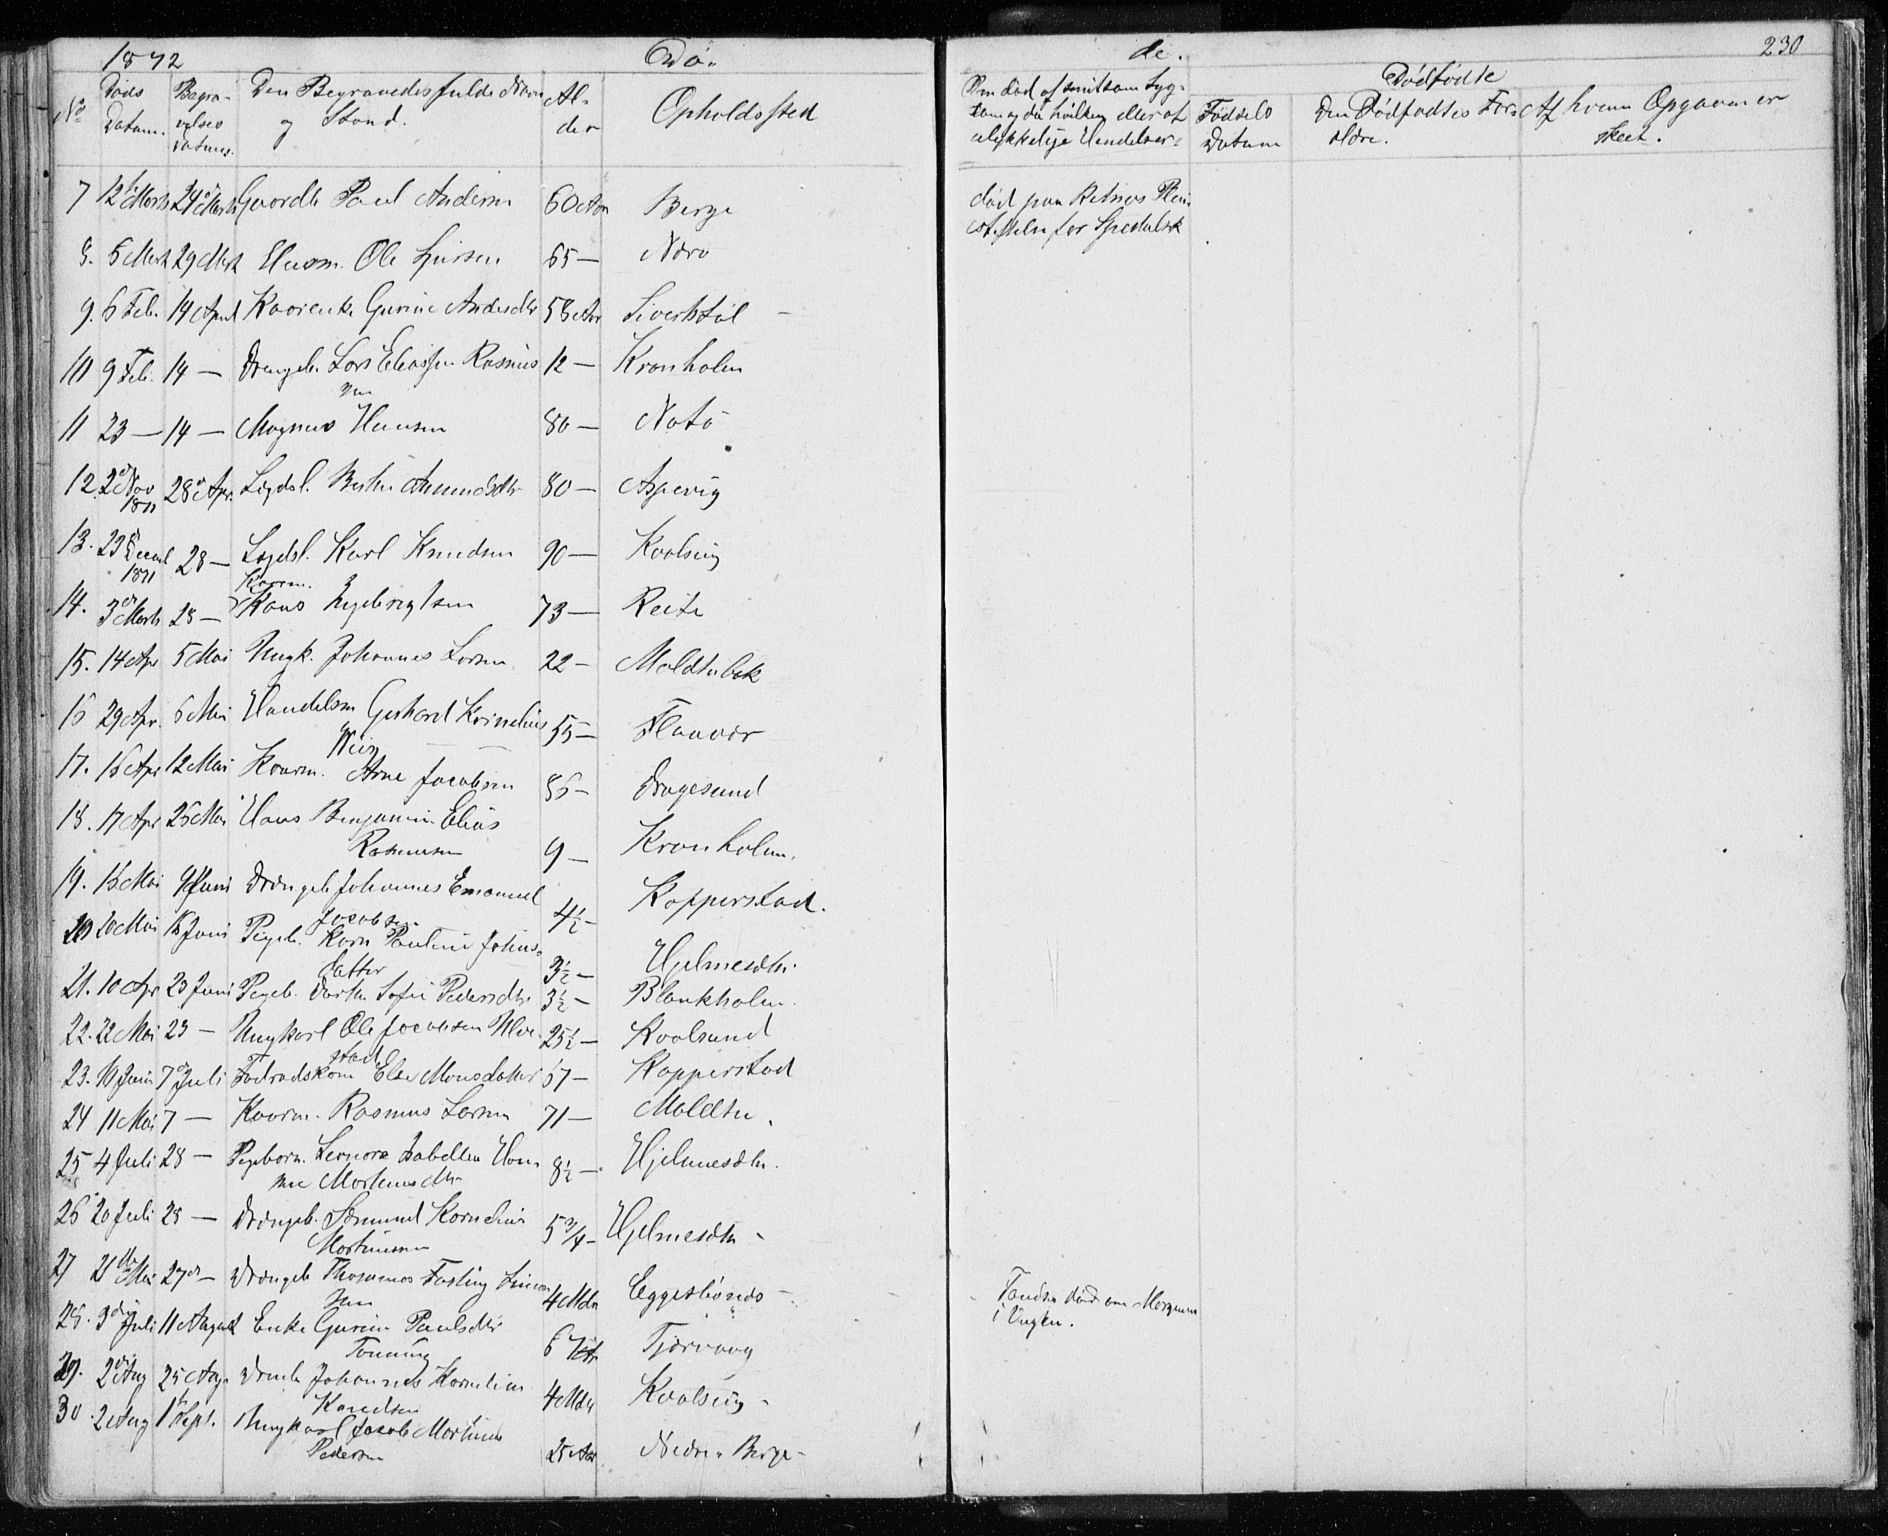 1872 Dö- de. 230
No Døds Datum. Begravelses Datum. Den Begravedes fulde Navn og Stand. Alder Opholdssted
Dødfødte
Fødsels Datum Den Dødfødtes Forældre. Af hvem Opgaven er skeet.
7 12te Marts 24de Marts Paul Andersen 60 Aar Berge død paa Reitnes Pleiestiftelse for Spedalsk
8. 6 Marts 29 Marts Husm. Ole 65 — Nærø
9. 6 Feb. 14 April Gurine Andersdtr 58 Aar Sivertstøl —
10 9 Feb. 14 — Drengeb. Lars Eliassen Rasmussen 12 — Kronholm
11 23 — 14 — Magnus Hansen 80 — Notø
12. 2 Nov 1871 28de Apr. Lægdsl. Berthe Amundsdtr 80 — Aspevig
13. 23 Decemb 1871 28 — Lægdsl. Karl Knudsen 90 — Kvalsvig
14. 3de Marts 28 — Kaarm. Hans Ingebrigtsen 73 — Reite
15. 14 Apr 5 Mai Ungk. Johannes Larsen 22 — Moldtubak
16 29 Apr. 6 Mai Handelsm Gerhard Kornelius 55 — Flaavær
17. 16 Apr 12 Mai Kaarm. Arne Jacobsen 86 — Dragesund
18. 17 Apr 26 Mai Hans Benjamin Elias
Rasmussen 9 — Kronholm.
19. 16 Mai 9 Juni Drengeb Johannes Emanuel
Jacobsen 4½ — Kopperstad.
20 20 Mai 16 Juni Pigeb. Karn Pauline Johns-
datter 3½ — Hjelmesæth.
21. 10 Apr 23 Juni Pigeb. Dorthe Sofie Pedersdtr 3½ — Blankholm.
22. 22 Mai 23 — Ungkarl Ole Jocobsen Ulve-
stad 25½ — Kvalsund
23. 16 Juni 7de Juli Føderaadskone Else Monsdatter 67 — Kopperstad
24 11 Mai 7 — Kaarm. Rasmus Larsen 71 — Moldtu.
25 4 Juli 28 — Pigebarn. Leonora Isabella Han-
na Mortensdtr 8½ — Hjelmesæth.
26 20 Juli 28 — Drengeb. Samuel Kornelius
Mortinussen 5 3/4 — Hjelmesæth -
27 21de Mai 27de — Drengeb Thommas Fasting Simon-
sen 4 Mdr Eggesbønes - Funden død om Morgenen
i Vuggen.
28. 3die Juli 11 August Enke Gurine Paulsdtr
67 Aar Tjørvaag
29. 2den Aug 25 Aug. Drengb Johannes Kornelius
Knudsen 4 Mdr Kvalsvig -
30. 2 Aug 1te Sept. Ungkarl Jacob Martinus
Pedersen 25 Aar Nedre Berge -